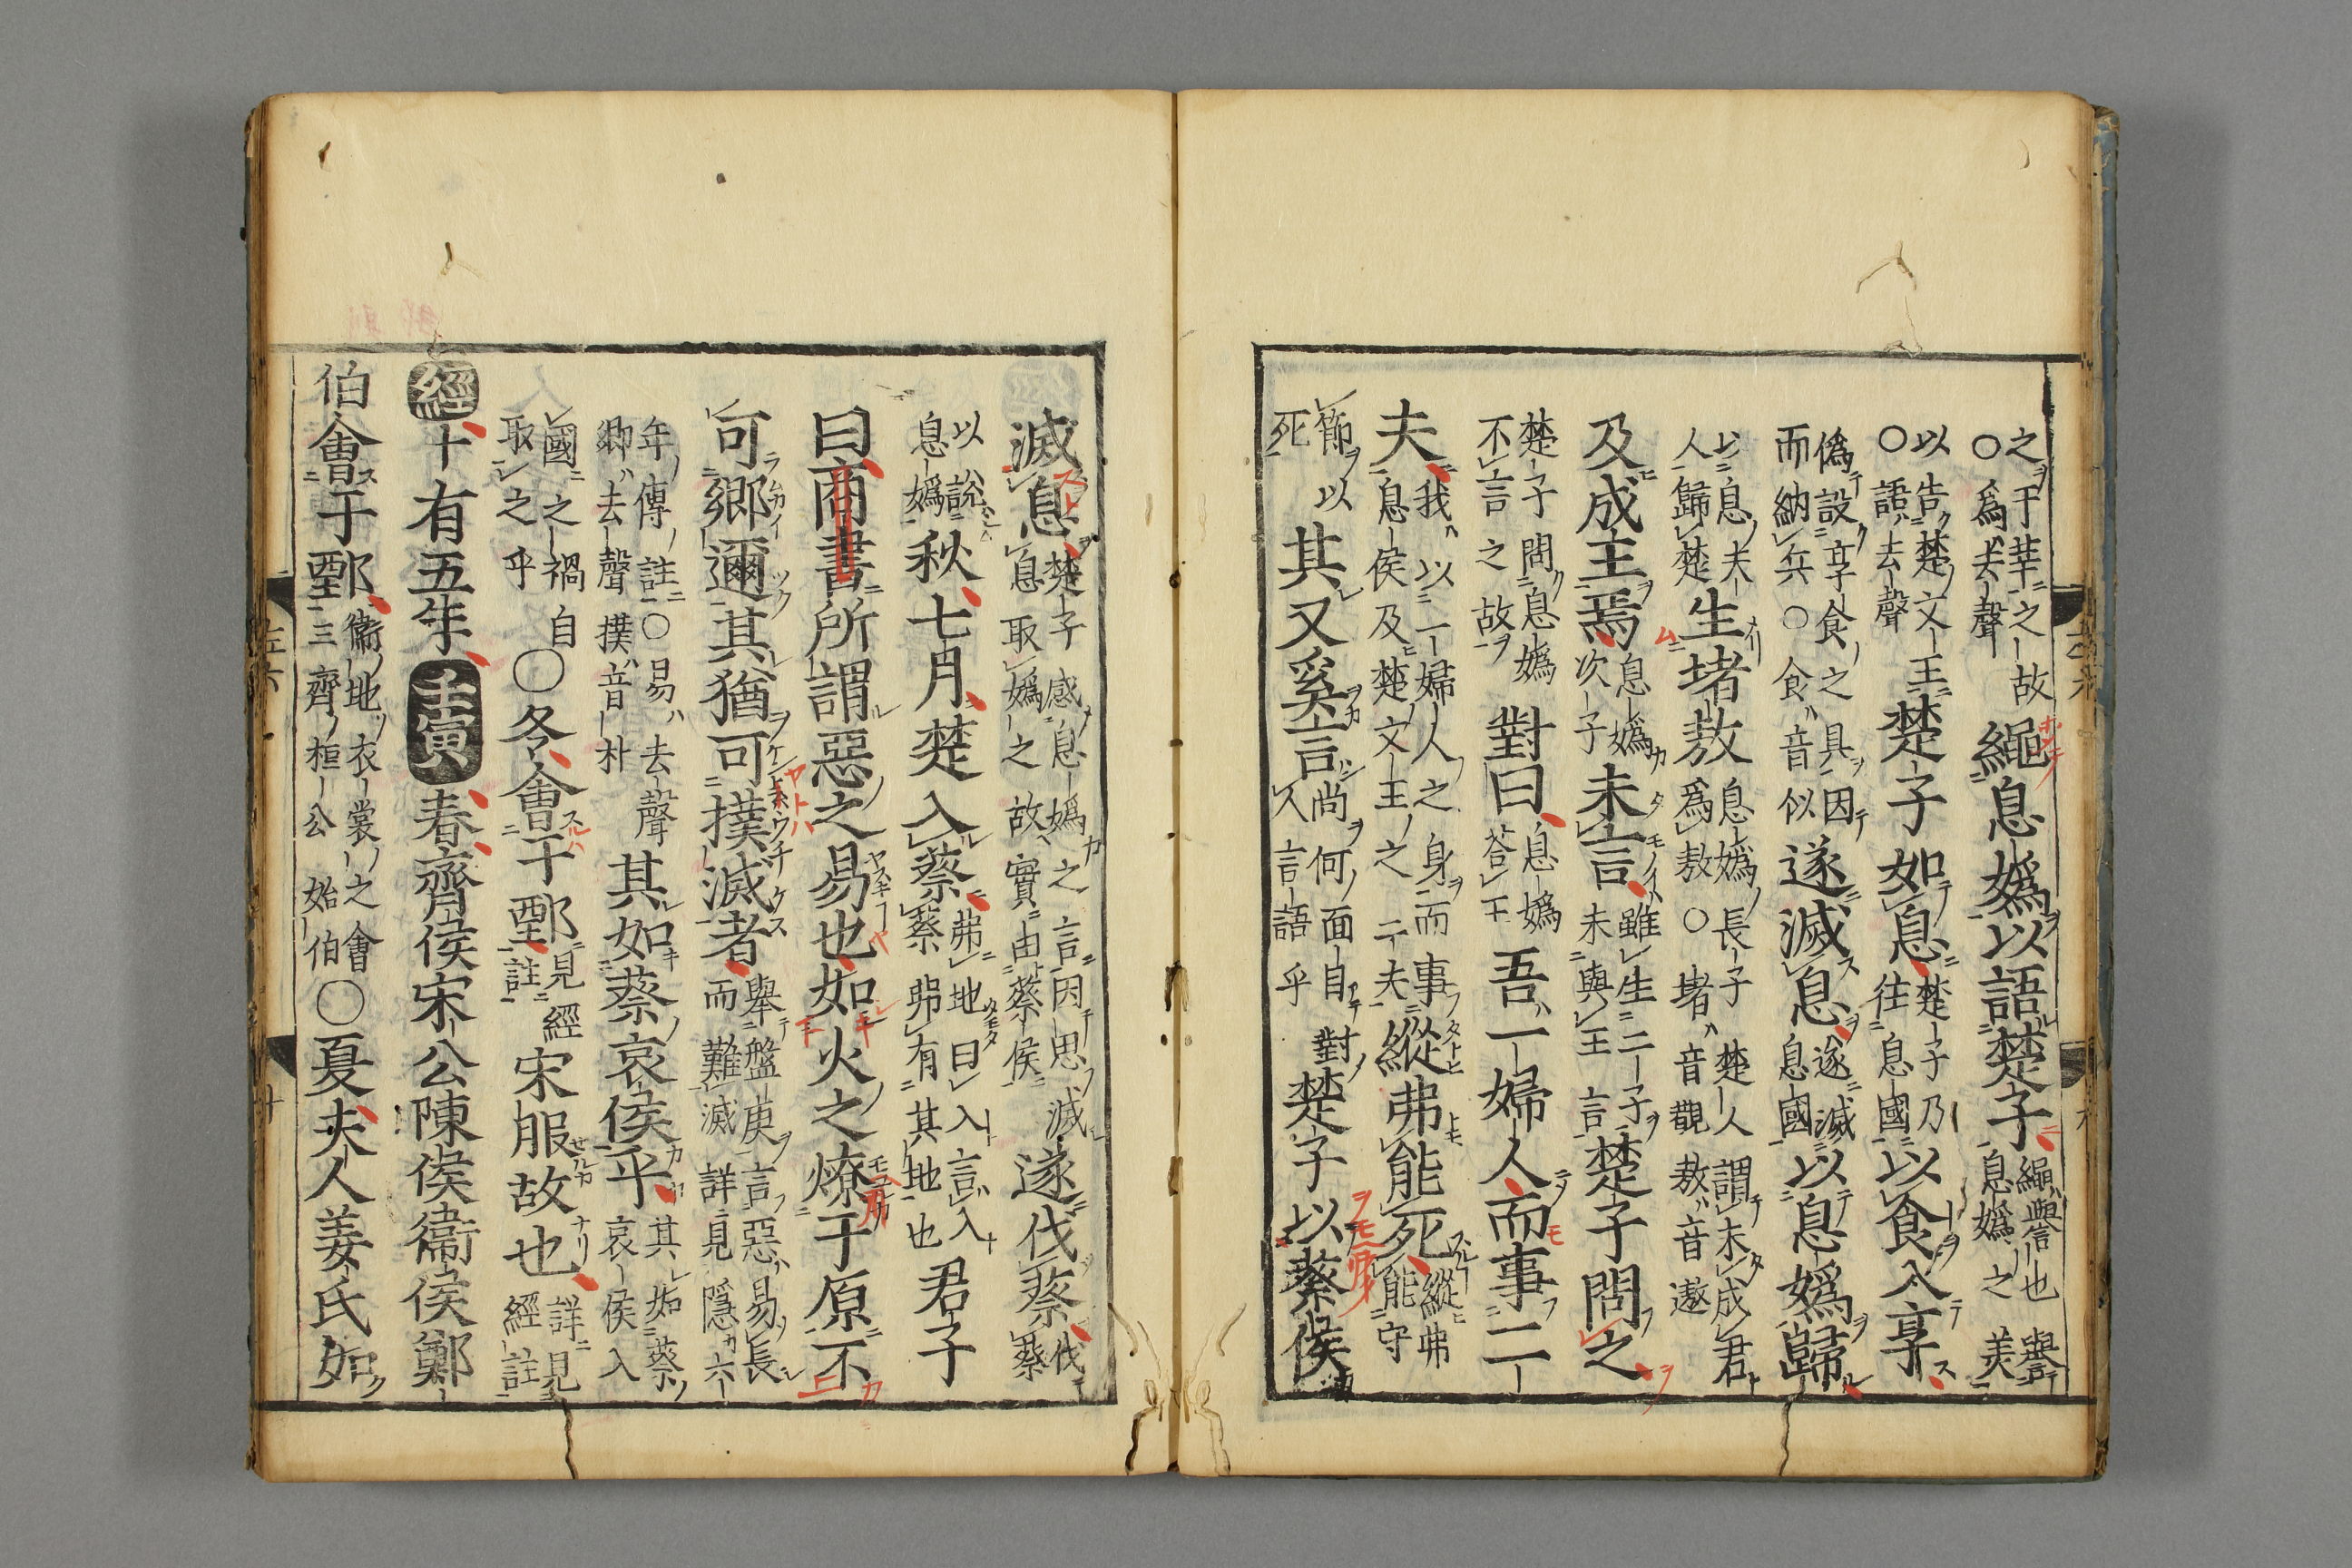 之于莘之故○爲去聲繩息嬀以語楚子繩譽也譽息嬀之美
以告楚文王○語去聲楚子如息楚子乃往息國以食入享
僞設享食之具因而納兵○食音似遂滅息遂滅息國以息嬀歸
以息夫人歸楚生堵敖息嬀長子楚人謂未成君爲敖○堵音覩敖音遨
及成王焉息嬀次子未言雖生二子未與王言楚子問之
楚子問息嬀不言之故對曰息嬀荅王吾一婦人而事二
夫我以一婦人之身而事息侯及楚文王之二夫縱弗能死縱弗能守
節以死其又奚言尚何面自對人言語乎楚子以蔡侯
滅息楚子感息嬀之言因思滅息取嬀之故實由蔡侯遂伐蔡伐蔡
以說息嬀秋七月楚入蔡弗地曰入言入蔡弗有其地也君子
曰商書所謂惡之易也如火之燎于原不
可鄉邇其猶可撲滅者舉盤庚言惡易長而難滅詳見隱六
年傳註○易去聲鄉去聲撲音朴其如蔡哀侯乎其如蔡哀侯入
國之禍自取之乎○冬會于鄄見經註宋服故也詳見經註
經十有五年壬寅春齊侯宋公陳侯衞侯鄭
伯會于鄄衞地衣裳之會三齊桓公始伯○夏夫人姜氏如